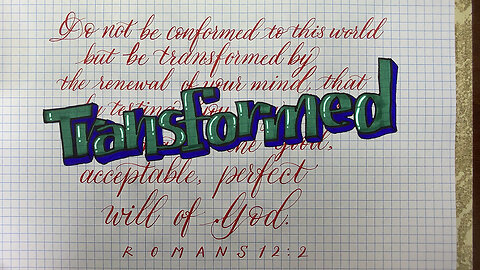 Do not be conformed to this world
but be transformed by
the renewal of your mind, that
by testing you
Transformed
the good,
acceptable, perfect
will of God.
ROMANS 12:2